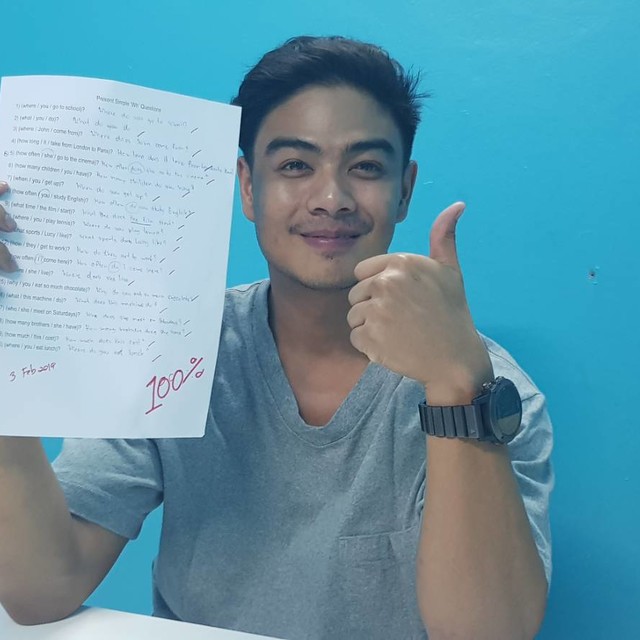 Present Simple 'Wh' Questions
1) (where / you / go to school)? Where do you go to school?
2) (what / you / do)? What do you do
3) (where / John / come from)? Where does John come from?
4) (how long / it / take from London to Paris)? How long does it take from London to Paris
5) (how often / she / go to the cinema)? How often she go to the cinema
6) (how many children / you / have)? How many children do you have?
7) (when / you / get up)? When do you get up?
(how often / you / study English)? How often study English
(what time / the film / start)? What time does the film start?
(where / you / play tennis)? Where do you play tennis?
sports / Lucy / like)? What sports does Lucy like?
/ they / get to work)? How do they get to work?
often / I / come here)? How often I come here?
/ she / live)? Where does she live
(why / you / eat so much chocolate)? Why do you eat so much chocolate
(what / this machine / do)? What does this machine do?
(who / she / meet on Saturdays)? Who does she meet on Saturdays?
(how many brothers / she / have)? How many brothers does she have?
(how much / this / cost)? How much does this cost?
(where / you / eat lunch)? Where do you eat lunch
3 Feb 2019
100%